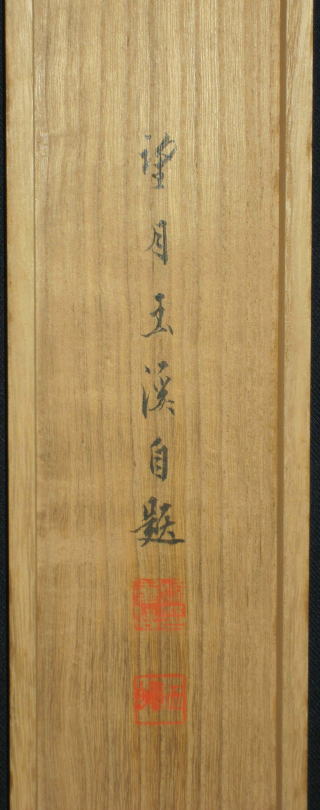 望月玉溪自題